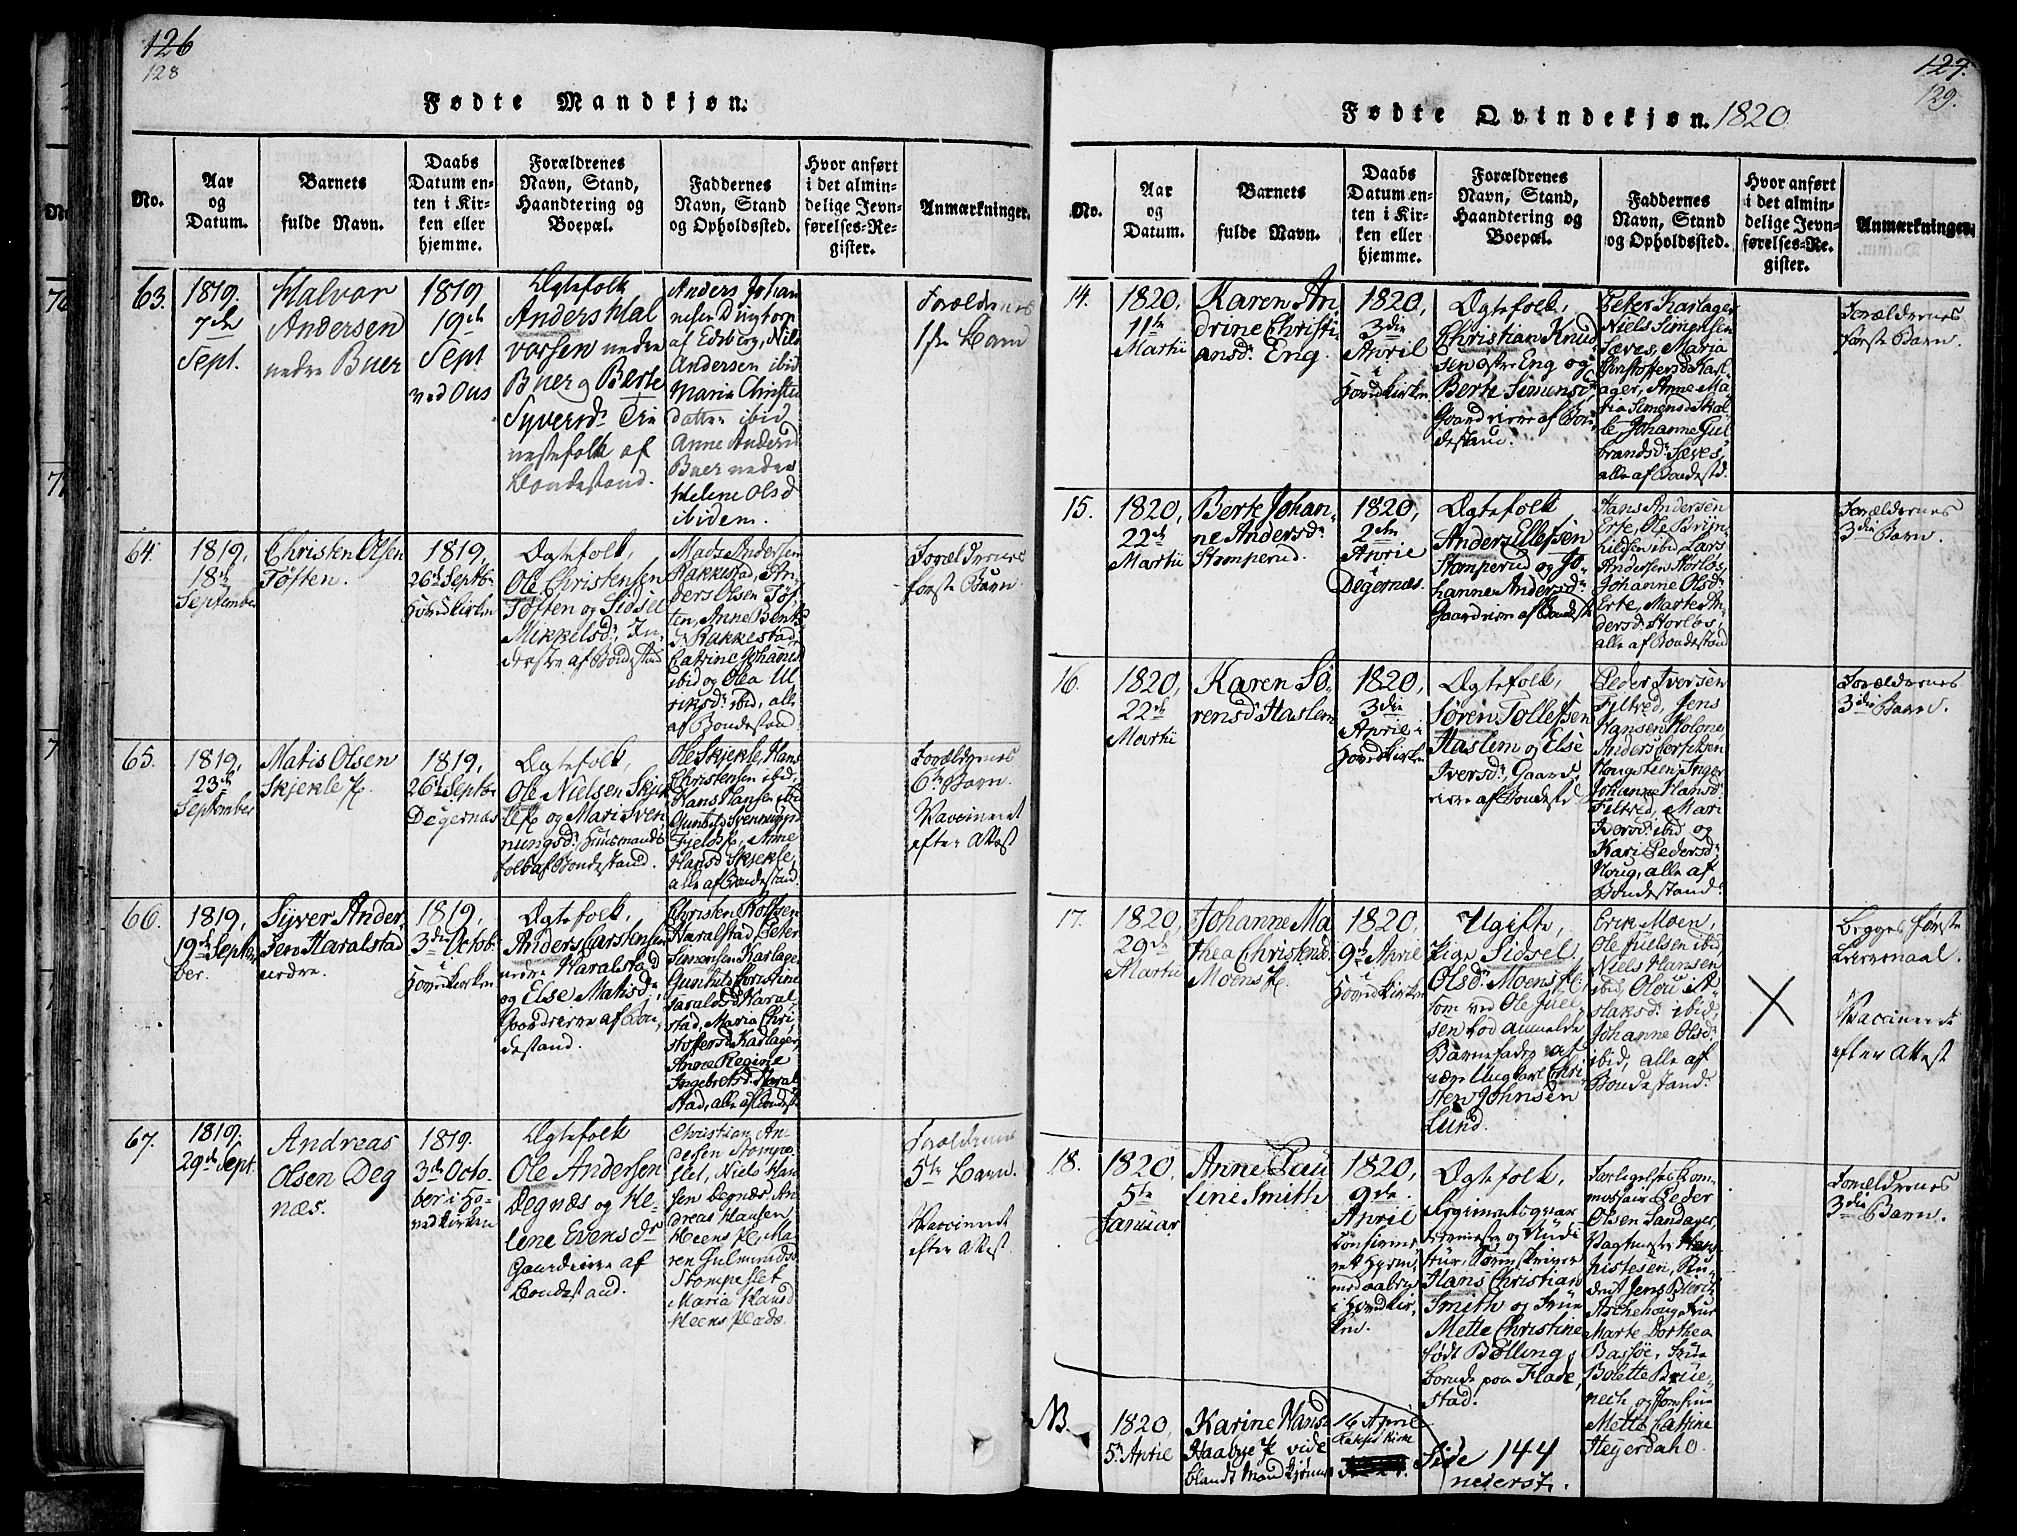 126
128
Fødte Mandkjøn.
No.
Aar
og
Datum.
Barnets
fulde Navn.
Daabs
Datum en-
ten i Kir-
ken eller
hjemme.
Forældrenes
Navn, Stand,
Haandtering og
Boepæl.
Faddernes
Navn, Stand
og Opholdssted.
Hvor anført
i det almin-
delige Jevn-
førelses-Re-
gister.
Anmærkninger.
63.
1819.
7de
Sept.
Halvor
Andersen
nedre Buer
1819
19de
Sept
ved Ous
Ægtefolk
Anders Hal
vorsen nedre
Buer og Berte
Syversdr Tie
nestefolk af
Bondestand.
Anders Johan
nesen
af Edsberg, Nils
Andersen ibid
Maria Christens
datter ibid
Anne Andersd
Buer nedre
Helene Olsd
ibidem.
Forældrenes
1ste Barn
64.
1819,
18de
September
Christen Olsen
Tøften.
1819,
26de Septbr
Hovedkirken
Ægtefolk,
Ole Christensen
Tøften og Sidsel
Mikkelsdr, In-
derste af Bondestand
Mads Andersen
Rakkestad, An-
ders Olsen Tøf-
ten, Anne Bents
dr Rakkestad,
Catrine Johannsd
ibid og Olea Ul
riksdr ibid, alle
af Bondestand
Forældrenes
første Barn
65.
1819,
23de
September
Matis Olsen
Skjekle
1819,
26de Septbr
Degernæs
Ægtefolk,
Ole Nielsen Skjek
le og Mari Sven
nungsdr Huusmands
folk af Bondestand.
Ole Skjekle, Hans
Christensen ibid,
Hans Hansen ibid
Gunhild Svennungsd
Fjeld, Anne
Hansd Skjekle,
alle af Bondestand.
Forældrenes
6te Barn.
Vaccineret
efter Attest
66.
1819,
19de Septem
ber.
Syver Ander-
sen Haralstad
nedre.
1819,
3die Octob
i
Hovedkirken
Ægtefolk,
Anders Carstensen
nedre Haralstad
og Else Matisdr,
Gaardeiere af Bon-
destand.
Christen Rolfsen
Haralstad, Peter
Simonsen Karlager
Gunhild Christine
Haralsd Haral-
stad, Maria Chri-
stoffersd Karlager,
Anne Regine
Ingebretsd Haral-
stad, alle af Bondest.
67.
1819.
29de Sept.
Andreas
Olsen Deg
næs.
1819.
3de Octo-
ber i Ho-
vedkirken
Ægtefolk
Ole Andersen
Degnæs og He-
lene Evensdr
Gaardeiere af
Bondestand.
Christian An-
dersen Stompe-
slet, Niels Han
sen Degnæs, An
dreas Hansen
Heens Pl, Ma-
ren Gulmundsd
Stompeslet
Maria Hansd
Heens Plads.
Forældrenes
5te Barn.
Vaccinerede
efter Attest.
127.
129.
Fødte Qvindekjøn. 1820
No.
Aar
og
Datum.
Barnets
fulde Navn.
Daabs
Datum en-
ten i Kir-
ken eller
hjemme.
Forældrenes
Navn, Stand,
Haandtering og
Boepæl.
Faddernes
Navn, Stand
og Opholdssted.
Hvor anført
i det almin-
delige Jevn-
førelses-Re-
gister.
Anmærkninger.
14.
1820,
11te
Martii
Karen An-
drine Christi-
ansdr Eng.
1820,
3die
April
i
Hovedkirken
Ægtefolk,
Christian Knud
sen østre Eng og
Berte Simensdr,
Gaardeiere af Bon-
destand.
Peter Karlager
Niels Simensen
Sæves, Maria
Christoffersd Karl-
ager, Anne Ma-
ria Simensd Skal-
le, Johanne Gul
brandsdr Sæves,
alle af Bondestd.
Forældrenes
første Barn.
15.
1820,
22de
Martii
Berte Johan-
ne Andersdr
Stomperud.
1820,
2den
April
i
Degernæs.
Ægtefolk,
Anders Ellefsen
Stomperud og Jo-
hanne Andersdr
Gaardeiere af Bondest
Hans Andersen
Erte, Ole Bryn-
hildsen ibid Lars
Andersen Storløs
Johanne Olsdr
Erte, Marte An-
dersdr Storløs,
alle af Bondestand
Forældrenes
3die Barn.
16.
1820,
22de
Martii
Karen Sø-
rensd Haslem
1820,
3die
April i
Hovedkirken
Ægtefolk,
Søren Tollefsen
Haslem og Else
Iversdr, Gaard-
eiere af Bondestd
Peder Iversen
Filtred, Jens
Hansen Holone
Anders
Inger
Johanne Hansd
Filtred, Mari
ibid og
Kari Pedersdr
Houg, alle af
Bondestand.
Forældrenes
3die Barn.
17.
1820,
29de
Martii
Johanne Ma
thea Christensd
Moens
1820,
9de April
i
Hovedkirken
Ugifte,
Pige Sidsel
Olsdr Moens
som ved Ole Juel
sen lod anmelde
Barnefader at
være Ungkarl Chri
sten Johnsen
Lund.
Erik Moen,
Ole Juelsen ibid
Niels Hansen
ibid, Olou A-
slaksdr ibid,
Johanne Olsdr
ibid, alle af
Bondestand.
Begges første
Leiermaal.
Vaccinerede
efter Attest
18.
1820.
5te
Januar
Anne Pau
line Smith
1820,
9de
April
i Hovedkir-
ken.
Ægtefolk,
Hans Christian
Smith og Frue
Mette Christine
født Bølling,
boende paa Flade-
stad.
Peder
Olsen Sandager,
Jens Blerich
Aschehoug, Frue
Marte Dorthea
Bassøe, Frue
Bolette Brue-
nech og Jomfrue
Mette Catrine
Heyerdahl.
Forældrenes
3die Barn.
NB.
1820
5te April
Karine Hansd
Haabye vide
blandt Mandkjønnet
16 April
Rakkest Kirke
Side 144
nederst.